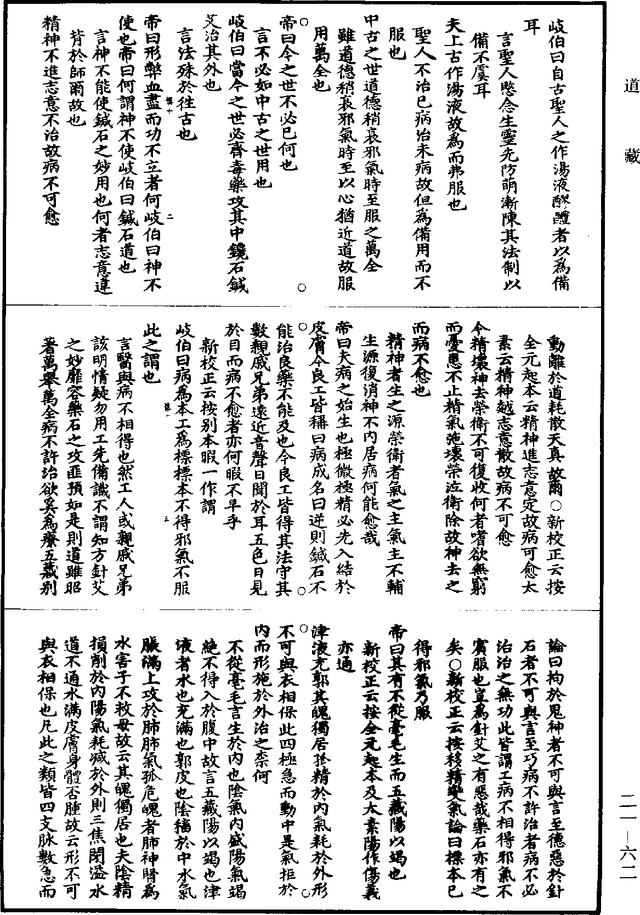 道藏
岐伯曰自古聖人之作湯液醪醴者以為備
耳
言聖人愍念生靈先防萌漸陳其法制以
備不虞耳
夫上古作湯液故為而弗服也
聖人不治已病治未病故但為備用而不
服也
中古之世道德稍衰邪氣時至服之萬全
雖道德稍衰邪氣時至以心猶近道故服
用萬全也
帝曰今之世不必已何也
言不必如中古之世用也
岐伯曰當今之世必齊毒藥攻其中鑱石鍼
艾治其外也
言法殊於往古也
帝曰形弊血盡而功不立者何岐伯曰神不
使也帝曰何謂神不使岐伯曰鍼石道也
言神不能使鍼石之妙用也何者志意違
背於師爾故也
精神不進志意不治故病不可愈
動離於道耗散天真故爾○新校正云按
全元起本云精神進志意定故病可愈太
素云精神越志意散故病不可愈
今精壞神去榮衛不可復收何者嗜欲無窮
而憂患不止精氣弛壞榮泣衛除故神去之
而病不愈也
精神者生之源榮衛者氣之主氣主不輔
生源復消神不內居病何能愈哉
帝曰夫病之始生也極微極精必先入結於
皮膚今良工皆稱曰病成名曰逆則鍼石不
能治良藥不能及也今良工皆得其法守其
數親戚兄弟遠近音聲日聞於耳五色日見
於目而病不愈者亦何暇不早乎
新校正云按別本暇一作謂
岐伯曰病為本工為標標本不得邪氣不服
此之謂也
言醫與病不相得也然工人或親戚兄弟
該明情疑勿用工先備識不謂知方針艾
之妙靡容藥石之攻匪預如是則道雖昭
著萬舉萬全病不許治欲奚為療五藏別
論曰拘於鬼神者不可與言至德惡於針
石者不可與言至巧病不許治者病不必
治治之無功此皆謂工病不相得邪氣不
賓服也豈為針艾之有惡哉藥石亦有之
矣○新校正云按移精變氣論曰標本已
得邪氣乃服
帝曰其有不從毫毛生而五藏陽以竭也
新校正云按全元起本及太素陽作傷義
亦通
津液充郭其魄獨居孤精於內氣耗於外形
不可與衣相保此四極急而動中是氣拒於
內而形施於外治之柰何
不從毫毛言生於內也陰氣內盛陽氣竭
絕不得入於腹中故言五藏陽以竭也津
液者水也充滿也郭皮也陰稸於中水氣
脹滿上攻於肺肺氣孤危魄者肺神腎為
水害子不救母故云其魄獨居也夫陰精
損削於內陽氣耗減於外則三焦閉溢水
道不通水滿皮膚身體否腫故云形不可
與衣相保也凡此之類皆四支脉數急而
二一－六二